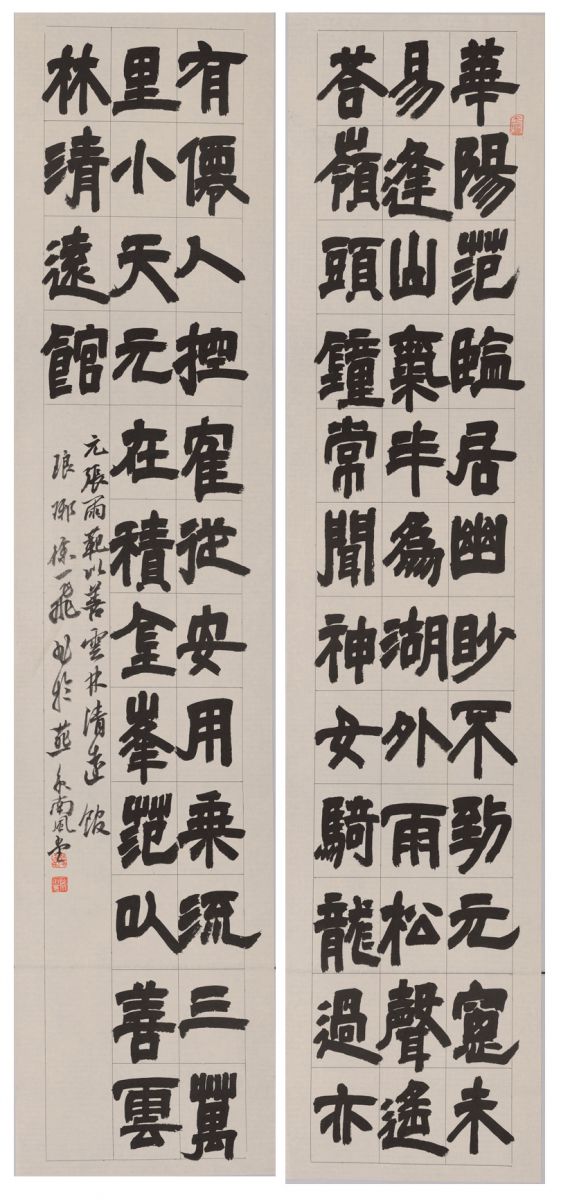 華陽范監居幽眇不到元未
易逢山氣半爲湖外雨松聲遙
荅嶺頭鐘常聞神女騎龍過亦
有僊人控寉從安用乘流三萬
里小天元在積金峯范以善雲
林清遠館
元張雨范以善雲林清遠館
琅琊徐一飛書於燕京南風堂